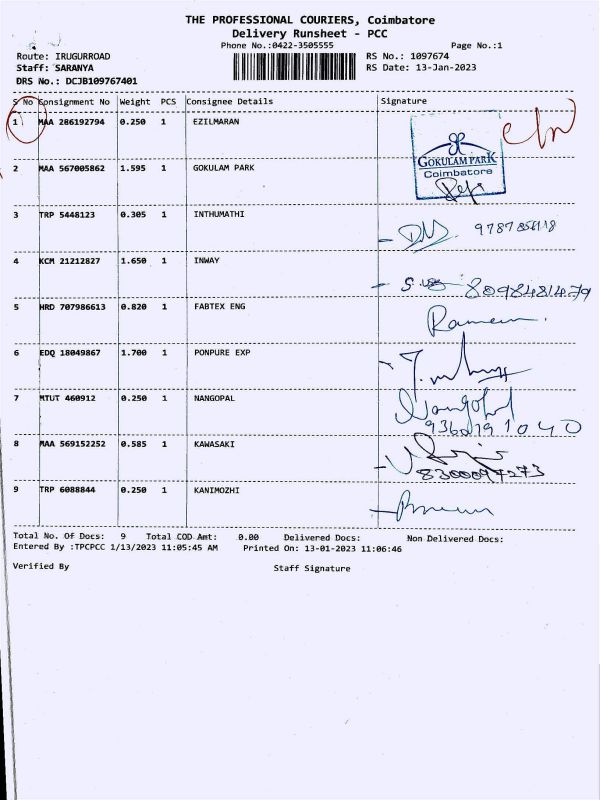 THE PROFESSIONAL COURIERS, Coimbatore
Delivery Runsheet - PCC
Phone No.:0422-3505555 Page No.:1
Route: IRUGURROAD RS No.: 1097674
Staff: SARANYA RS Date: 13-Jan-2023
DRS No.: DCJB109767401
S No Consignment No Weight PCS Consignee Details Signature
1 MAA 286192794 0.250 1 EZILMARAN
2 MAA 567005862 1.595 1 GOKULAM PARK
GOKULAM PARK
Coimbatore
3 TRP 5448123 0.305 1 INTHUMATHI
4 KCM 21212827 1.650 1 INWAY
8098481479
5 HRD 707986613 0.820 1 FABTEX ENG
6 EDQ 18049867 1.700 1 PONPURE EXP
7 MTUT 460912 0.250 1 NANGOPAL
8 MAA 569152252 0.585 1 KAWASAKI
8300097273
9 TRP 6088844 0.250 1 KANIMOZHI
Total No. Of Docs: 9 Total COD Amt: 0.00 Delivered Docs: Non Delivered Docs:
Entered By :TPCPCC 1/13/2023 11:05:45 AM Printed On: 13-01-2023 11:06:46
Verified By Staff Signature